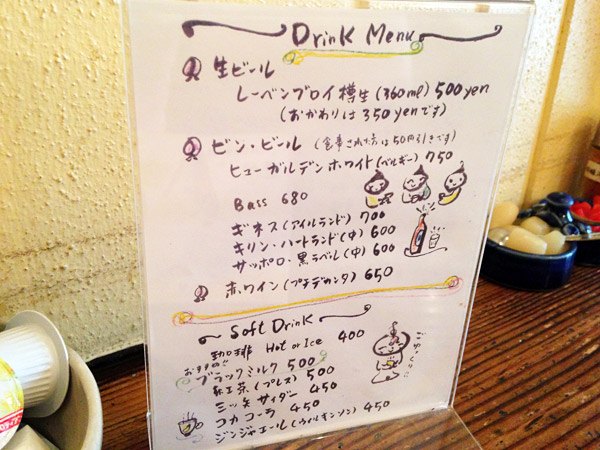 Drink Menu
生ビール
レーベンブロイ樽生(360ml) 500yen
(おかわりは350yenです)
ビン・ビール (食事された方は50円引きです)
ヒューガルデンホワイト(ベルギー) 750
Bass 680
ギネス(アイルランド) 700
キリン・ハートランド(中) 600
サッポロ・黒ラベル(中) 600
ホワイン(プチデカンタ) 650
Soft Drink
珈琲 Hot or Ice 400
おすすめ!!
ブラックミルク 500
紅茶(プレス) 500
三ツ矢サイダー 450
コカコーラ 450
ジンジャエール(ウィルキンソン) 450